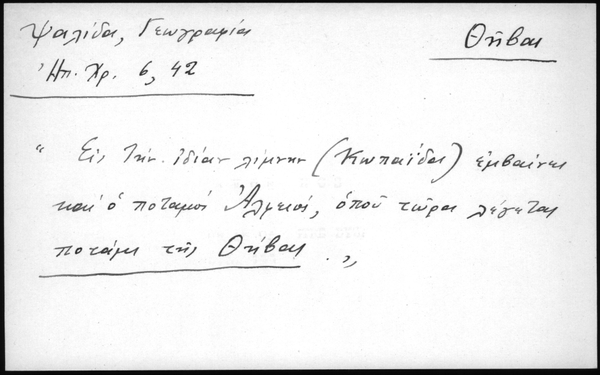 Ψαλίδα, Γεωγραφία
Θῆβαι
Ἠπ. Χρ. 6, 42
" Εἰς τὴν ἰδίαν λίμνην (Κωπαΐδα) ἐμβαίνει
καὶ ὁ ποταμὸς , ὁποῦ τώρα λέγεται
ποτάμι τῆς Θήβας . „